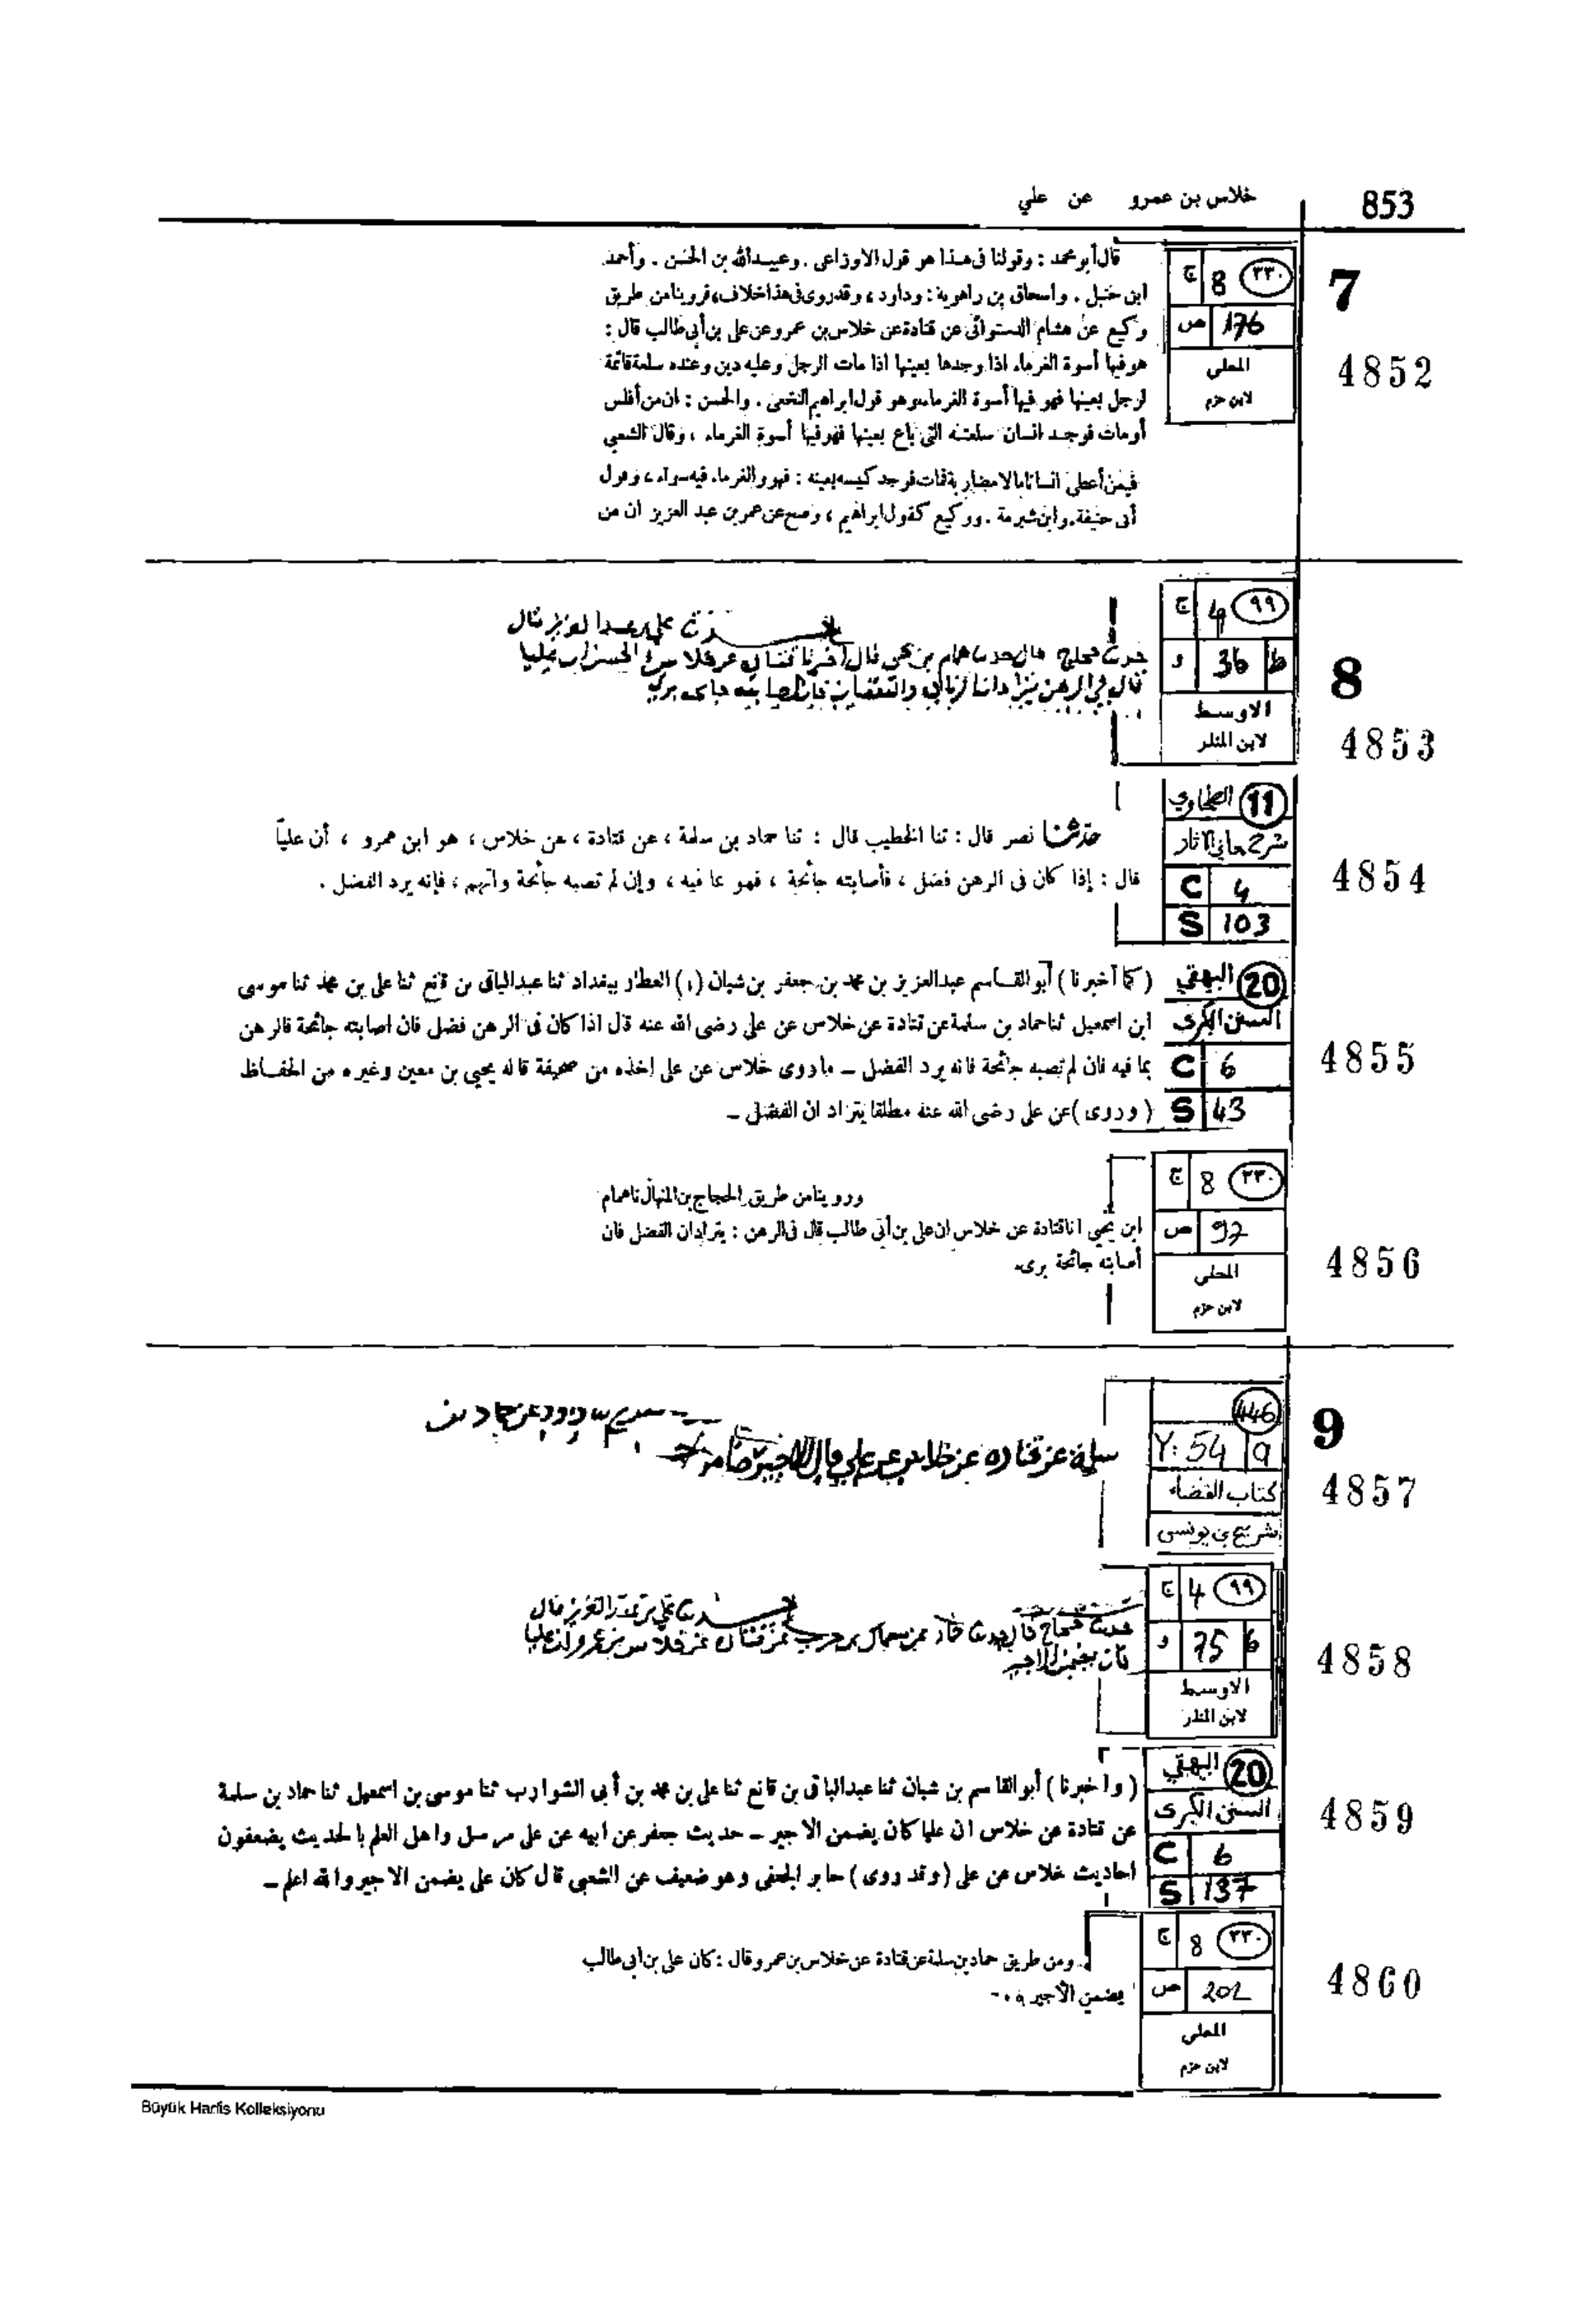 853
خلاس بن عمرو عن علي
7
4852
ج 8 ٣٣٠
ص 176
المحلى
لابن حزم
قال أبو محمد : وقولنا فى هذا هو قول الاوزاعى . وعبيد الله بن الحسن . وأحمد
ابن حنبل . واسحاق بن راهويه : وداود ، وقد روى فى هذا خلاف ، فروينا من طريق
وكيع عن هشام الدستوائى عن قتادة عن خلاس بن عمرو عن على بن أبى طالب قال :
هو فيها أسوة الغرماء اذا وجدها بعينها اذا مات الرجل وعليه دين وعنده سلعة قائمة
لرجل بعينها فهو فيها أسوة الغرماء وهو قول ابراهيم النخعى . والحسن : ان من أفلس
أو مات فوجد انسان سلعته التى باع بعينها فهو فيها أسوة الغرماء ، وقال الشعبي
فيمن أعطى انسانا مالا مضاربة فمات فوجد كيسه بعينه : فهو والغرماء فيه سواء ، وقول
أبى حنيفة . وابن شبرمة . ووكيع كقول ابراهيم ، وصح عن عمر بن عبد العزيز ان من
8
4853
ج 4 ٩٩
و 36 b
الاوسط
لابن المنذر
علي بن عبد العزيز قال
حدثنا حجاج قال حدثنا همام بن يحيى قال أخبرنا قتادة عن خلاس أن عليا
قال في الرهن يترادان الزيادة والنقصان فإن أصابته جائحة برئ
4854
11 الطحاوي
شرح معاني الآثار
C 4
S 103
حدثنا نصر قال : ثنا الخطيب قال : ثنا حماد بن سلمة ، عن قتادة ، عن خلاس ، هو ابن عمرو ، أن علياً
قال : إذا كان فى الرهن فضل ، فأصابته جائحة ، فهو بما فيه ، وإن لم تصبه جائحة واتهم ، فإنه يرد الفضل .
4855
20 البيهقي
السنن الكبرى
C 6
S 43
( كما أخبرنا ) أبو القاسم عبد العزيز بن محمد بن جعفر بن شبان (١) العطار ببغداد ثنا عبد الباقى بن قانع ثنا على بن محمد ثنا موسى
ابن اسمعيل ثنا حماد بن سلمة عن قتادة عن خلاس عن على رضى الله عنه قال اذا كان فى الرهن فضل فان اصابته جائحة فالرهن
بما فيه فان لم تصبه جائحة فانه يرد الفضل – ما روى خلاس عن على اخذه من صحيفة قاله يحيى بن معين وغيره من الحفاظ
( وروى ) عن على رضى الله عنه مطلقا يتراد ان الفضل –
4856
ج 8 ٣٣٠
ص 97
المحلى
لابن حزم
وروينا من طريق الحجاج بن المنهال نا همام
ابن يحيى انا قتادة عن خلاس ان على بن أبى طالب قال فى الرهن : يترادان الفضل فان
أصابته جائحة برىء
9
4857
446
Y: 54 a
كتاب القضاء
شريح بن يونس
عن حماد بن
سلمة عن قتادة عن خلاس عن علي قال الأجير ضامن
4858
ج 4 ٩٩
و 75 b
الاوسط
لابن المنذر
علي بن عبد العزيز قال
حدثنا حجاج قال حدثنا حماد عن سماك بن حرب عن قتادة عن خلاس بن عمرو أن عليا
كان يضمن الاجير
4859
20 البيهقي
السنن الكبرى
C 6
S 137
( واخبرنا ) أبو القاسم بن شبان ثنا عبد الباقى بن قانع ثنا على بن محمد بن أبى الشوارب ثنا موسى بن اسمعيل ثنا حماد بن سلمة
عن قتادة عن خلاس ان عليا كان يضمن الاجير – حديث جعفر عن ابيه عن على مرسل واهل العلم بالحديث يضعفون
احاديث خلاس عن على ( وقد روى ) جابر الجعفى وهو ضعيف عن الشعبي قال كان على يضمن الاجير والله اعلم –
4860
ج 8 ٣٣٠
ص 202
المحلى
لابن حزم
ومن طريق حماد بن سلمة عن قتادة عن خلاس بن عمرو قال : كان على بن أبى طالب
يضمن الأجير
Büyük Hadis Kolleksiyonu